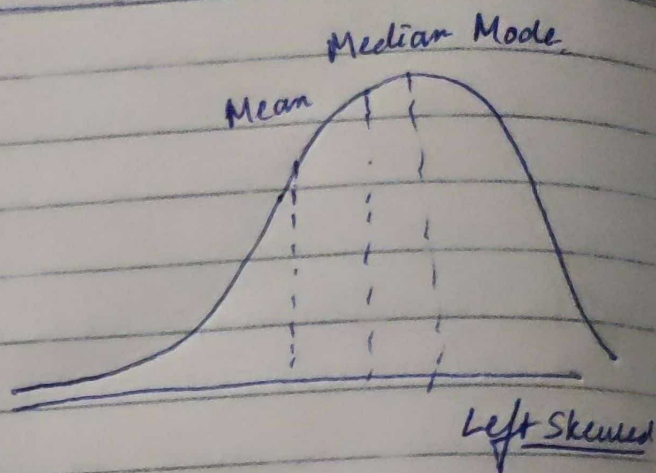 Median Mode
Mean
Left Skewed